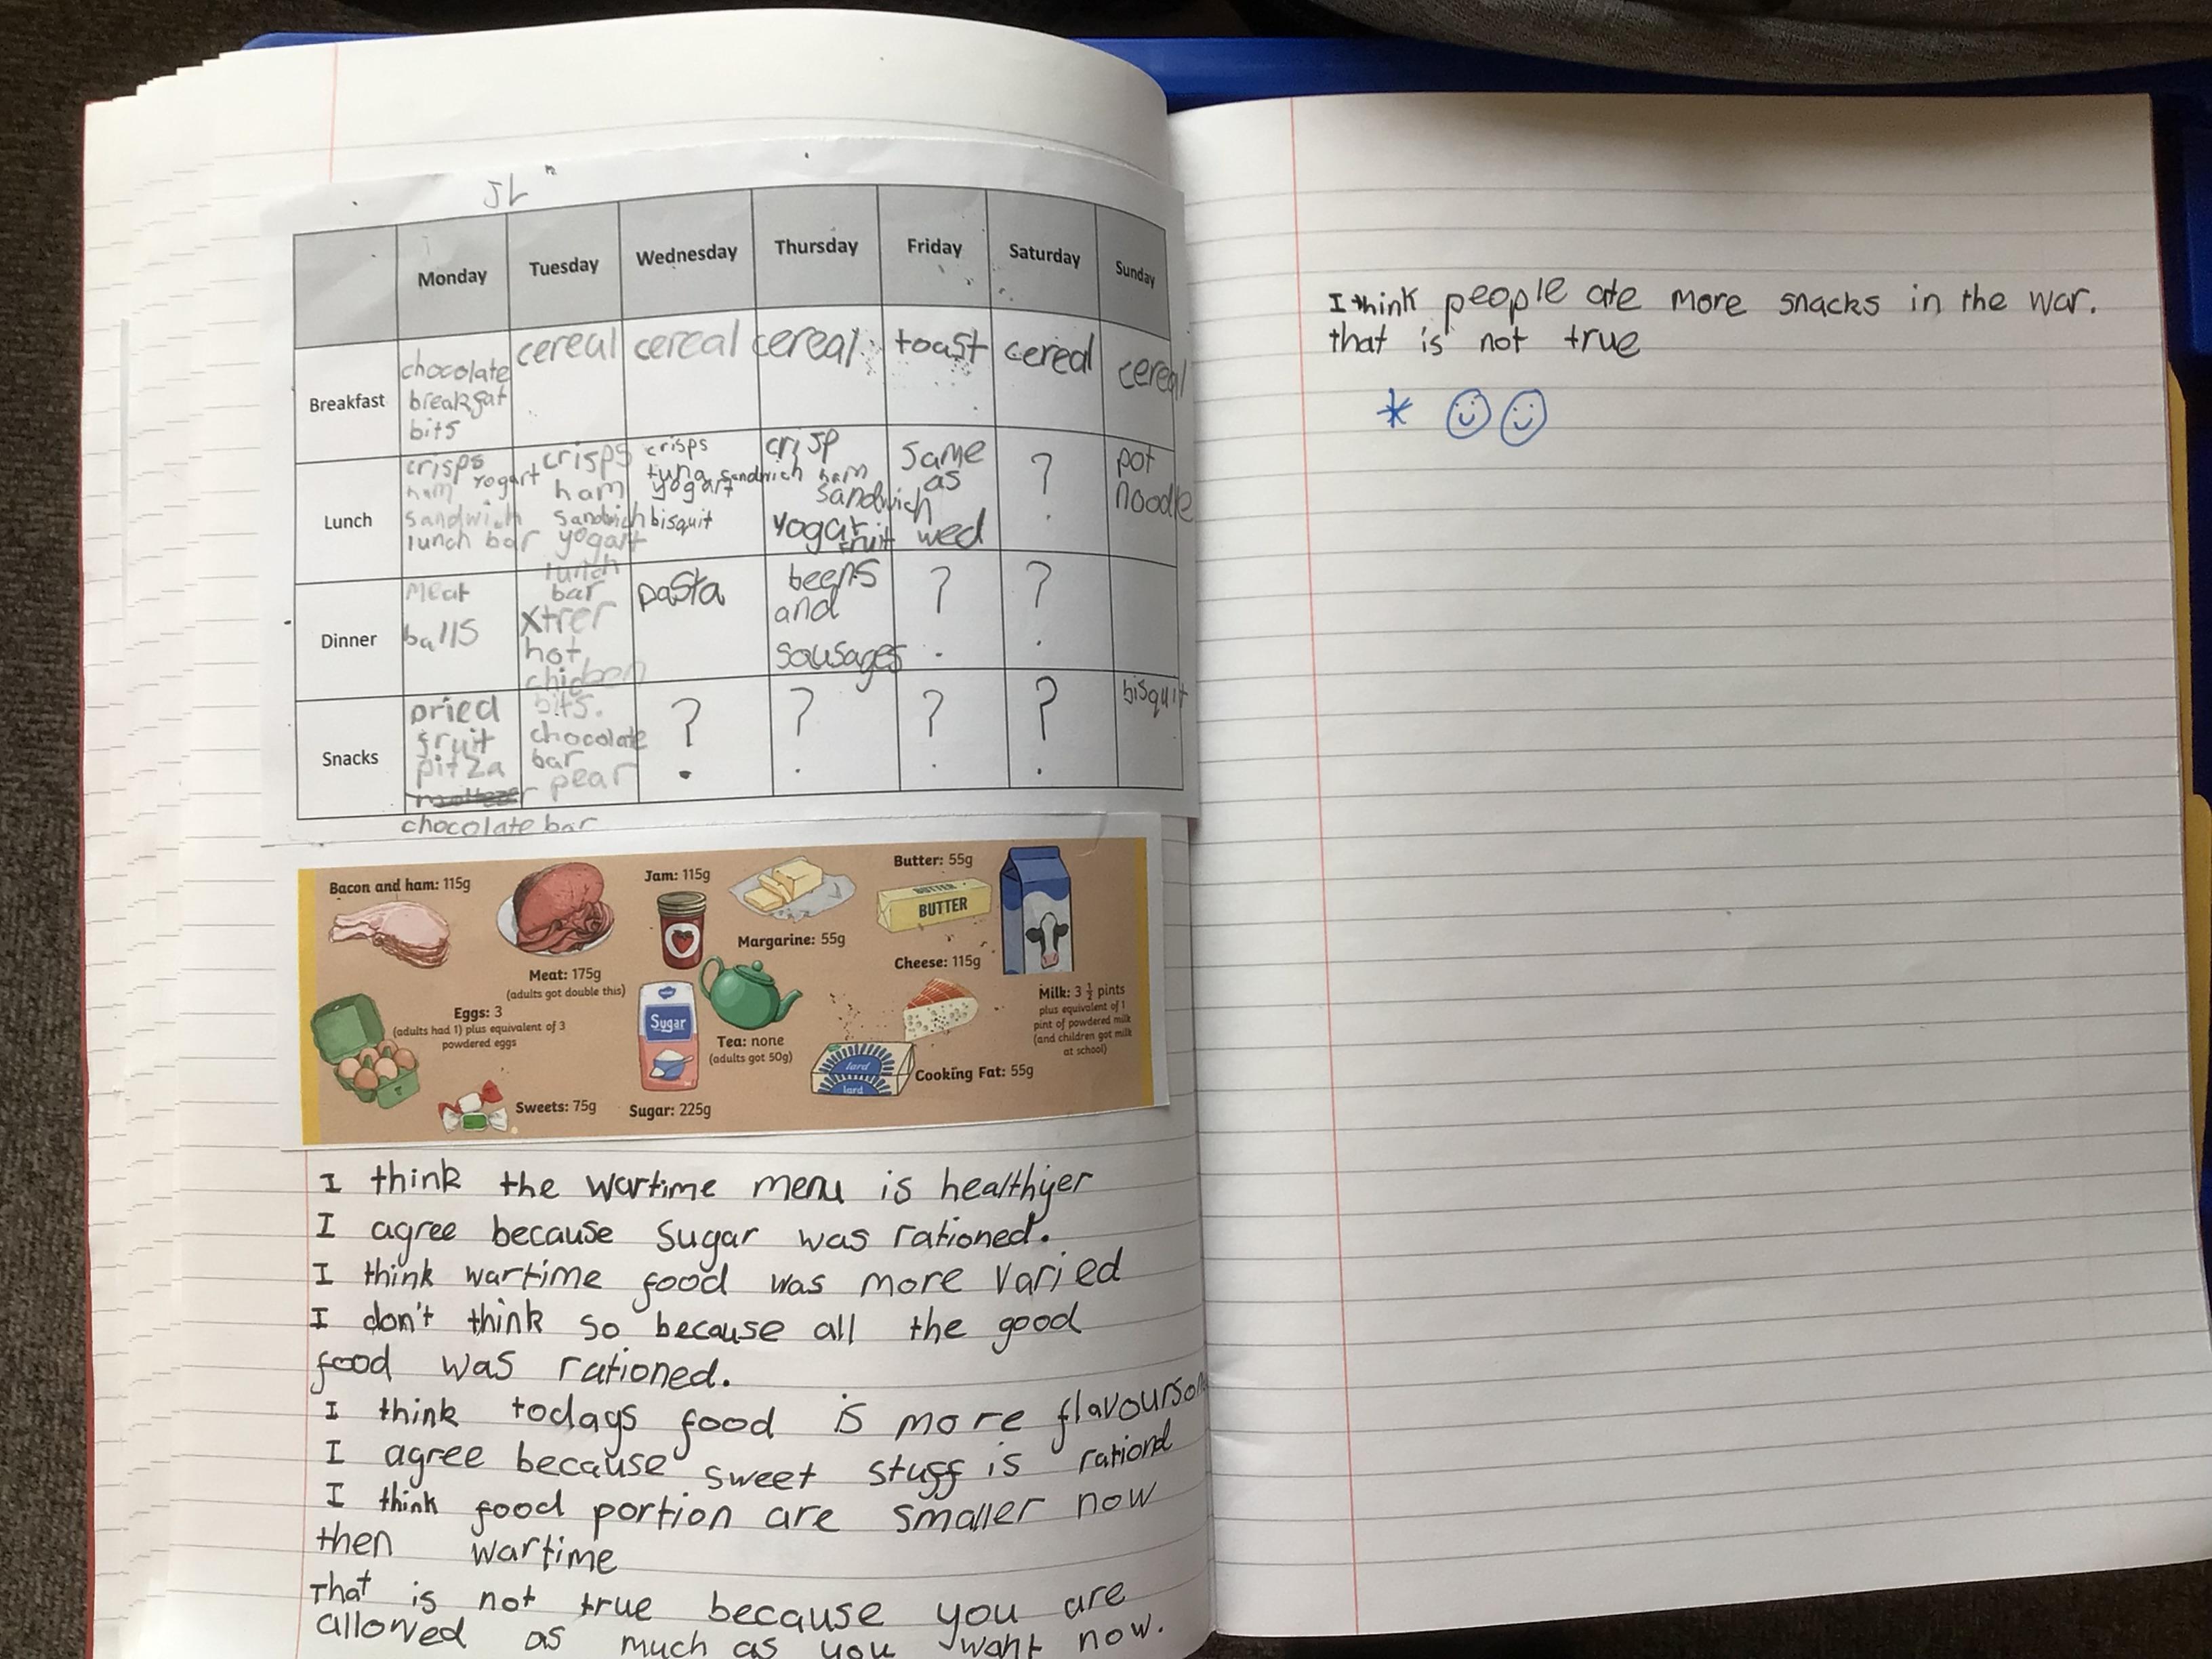 JL
Monday Tuesday Wednesday Thursday Friday Saturday Sunday
Breakfast
chocolate
breakfat
bits
cereal
cereal
cereal
toast
cereal
cereal
Lunch
crisps
yogart
ham
sandwich
lunch bar
crisps
ham
sandwich
yogart
lunch
bar
crisps
tuna sandwich
yogart
bisquit
crisp
ham
sandwich
yogart
fruit
same
as
wed
?
pot
noodle
Dinner
meat
balls
xtrer
hot
chicken
bits.
pasta
beens
and
sausages
?
?
Snacks
Dried
fruit
pitza
chocolate bar
chocolate
bar
pear
?
?
?
?
bisquit
Bacon and ham: 115g
Meat: 175g
(adults got double this)
Jam: 115g
Margarine: 55g
Butter: 55g
BUTTER
BUTTER
Cheese: 115g
Milk: 3 ½ pints
plus equivalent of 1
pint of powdered milk
(and children got milk
at school)
Eggs: 3
(adults had 1) plus equivalent of 3
powdered eggs
Sugar
Tea: none
(adults got 50g)
lard
lard
Cooking Fat: 55g
Sweets: 75g
Sugar: 225g
I think the wartime menu is healthyer
I agree because sugar was rationed.
I think wartime food was more varied
I don't think so because all the good
food was rationed.
I think todays food is more
I agree because sweet stuff is rationd
I think food portion are smaller now
then wartime
That is not true because you are
allowed as much as you want now.
I think people ate more snacks in the war.
that is not true